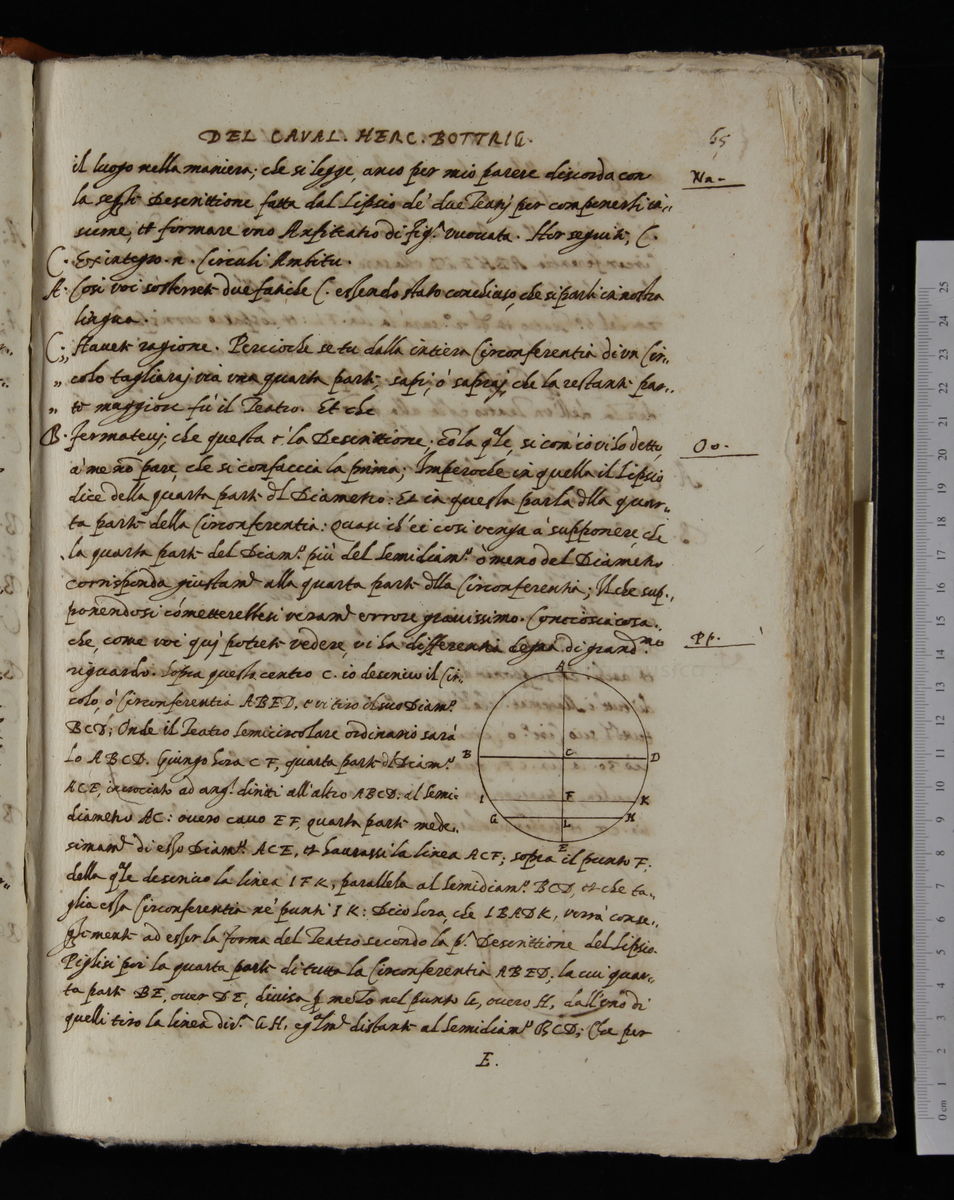 DEL CAVAL. HERC. BOTTRIG. 65
il luogo nella maniera; che si legge, anco per mio parere discorda con Na-
la Descrittione fatta dal Lipsio de' due Teatrj per componerli in-
sieme, et formare uno Anfiteatro di fig.ª vuovata. Hor seguite, C.
C. Ex integro .n. Circuli Ambitu.
A. Così voi sosterrete due fatiche C. essendo stato conchiuso, che si parli in nostra
lingua.
C. Havete ragione. Percioche se tu dalla intiera Circonferentia di un Cir-
„ colo tagliaraj via una quarta parte; sapi, ò sapraj, che la restante par-
„ te maggiore fù il Teatro. Et che
B. Fermatevj; che questa è la Descrittione. Co la q.le, si com'io vi hò detto, Oo.
à me nõ pare, che si confaccia la prima; Imperoche in quella il Lipsio
dice della quarta parte dl Diametro: Et in questa parla dlla quar-
ta parte della Circonferentia: Quasi ch'ei così venga à supponere, che
la quarta parte del Diam.º più del Semidiam.º ò meno del Diametro
corrisponda giustam.e alla quarta parte dlla Circonferentia; Il che sup-
ponendosi cõmetterebbesi veram.e errore gravissimo. Conciosia cosa
che, come voi quì potrete vedere, vi hà differentia degna di grand.mo Pp.
riguardo. Sopra questo centro C. io descrivo il Cir-
colo, ò Circonferentia ABED, e vi tiro il suo Diam.º
BCD; Onde il Teatro semicircolare ordinario sarà
lo ABCD. Giungo hora CF, quarta parte dl Diam.º
ACE, incrociato ad ang.li diritti all'altro ABCD. al Semi-
diametro AC: overo cavo EF, quarta parte mede-
simam.e di esso Diam.º ACE, et haverassi la linea ACF; sopra il punto F,
della q.le descrivo la linea IFK, parallela al Semidiam.º BCD, et che ta-
glia essa Circonferentia ne' punti IK: Dico hora, che IBADK, verrà conse-
guentemente ad esser la forma del Teatro secondo la p.ª Descrittione del Lipsio.
Piglisi poi la quarta parte di tutta la Circonferentia ABED, la cui quar-
ta parte BE, over DE, divisa p mezo nel punto G, overo H, dall'uno di
quelli tiro la linea dir.ª GH, eq.lm.e distante al Semidiam.º BCD; Che per
E.
A
B C D
I F K
G L H
E